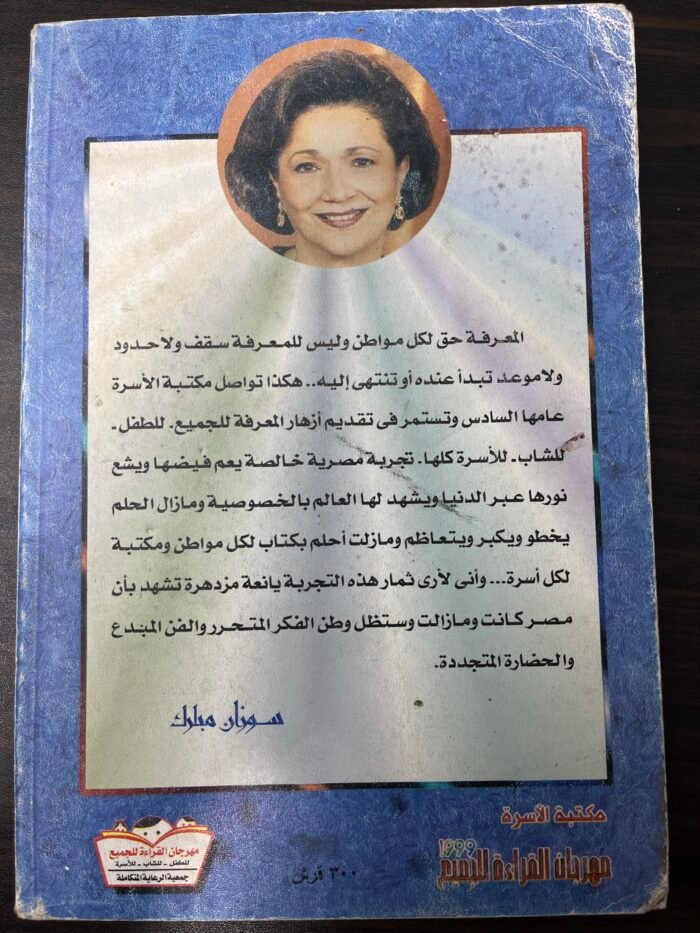 المعرفة حق لكل مواطن وليس للمعرفة سقف ولا حدود
ولا موعد تبدأ عنده أو تنتهى إليه.. هكذا تواصل مكتبة الأسرة
عامها السادس وتستمر فى تقديم أزهار المعرفة للجميع. للطفل ـ
للشاب ـ للأسرة كلها. تجربة مصرية خالصة يعم فيضها ويشع
نورها عبر الدنيا ويشهد لها العالم بالخصوصية ومازال الحلم
يخطو ويكبر ويتعاظم ومازلت أحلم بكتاب لكل مواطن ومكتبة
لكل أسرة... وأنى لأرى ثمار هذه التجربة يانعة مزدهرة تشهد بأن
مصر كانت ومازالت وستظل وطن الفكر المتحرر والفن المبدع
والحضارة المتجددة.
سوزان مبارك
مكتبة الأسرة
1999
مهرجان القراءة للجميع
٣٠٠ قرش
مهرجان القراءة للجميع
للطفل - للشاب - للأسرة
جمعية الرعاية المتكاملة